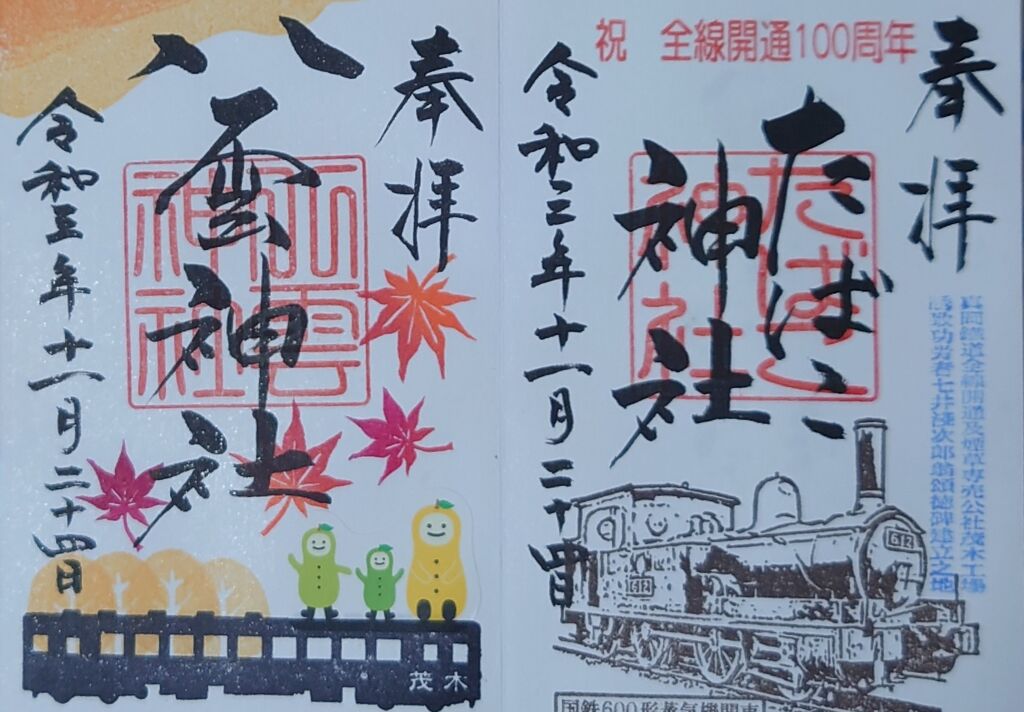 祝 全線開通100周年
奉拝
たばこ神社
たばこ神社
令和三年十一月二十四日
真岡鐵道全線開通及煙草専売公社茂木工場
誘致功労者七井 次郎翁頌徳碑建立之地
612
612
国鉄600形蒸気機関車
奉拝
八雲神社
八雲神社
令和三年十一月二十四日
茂木